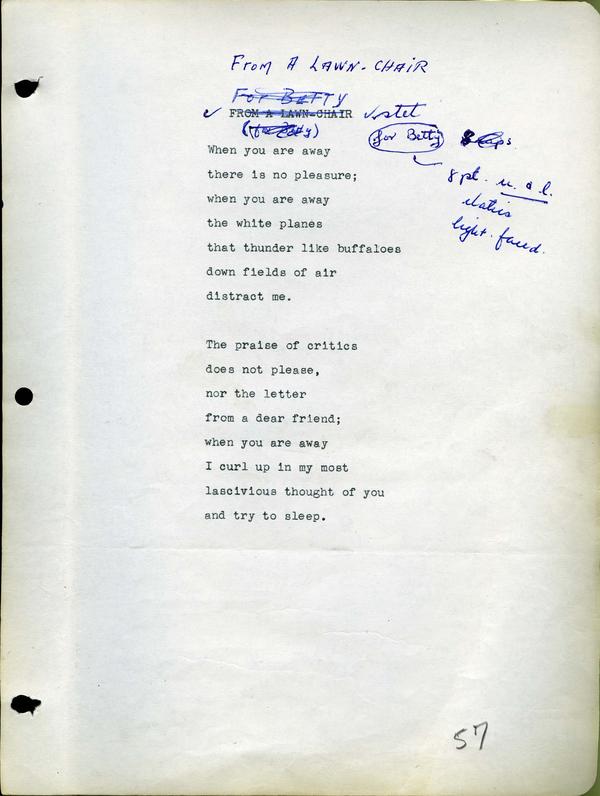 From A LAWN-CHAIR
For BETTY
✓ FROM A LAWN-CHAIR ✓ stet
(for Betty)
for Betty caps.
When you are away
there is no pleasure;
8 pt. u. & l.
when you are away
italics
the white planes
light-faced.
that thunder like buffaloes
down fields of air
distract me.
The praise of critics
does not please,
nor the letter
from a dear friend;
when you are away
I curl up in my most
lascivious thought of you
and try to sleep.
57